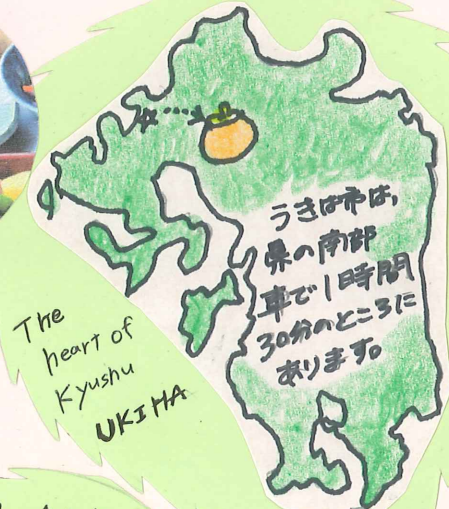 うきは市は、
県の南部
車で1時間
30分のところに
あります。
The
heart of
Kyushu
UKIHA